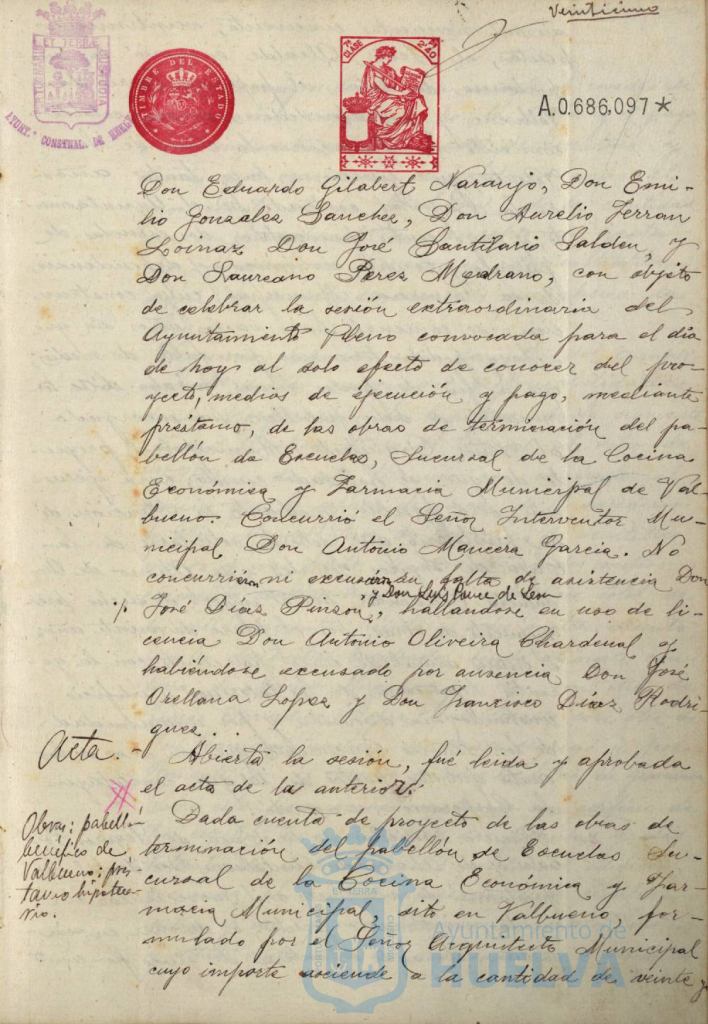 Veinticinco
PORTUM MARIS ET TERRAE CUSTODIA
AYUNT.º CONSTNAL. DE HUELVA
TIMBRE DEL ESTADO
7ª CLASE 2'40
A.0.686,097*
Don Eduardo Gilabert Naranjo, Don Emi-
lio Gonzalez Sanchez, Don Aurelio Ferran
Loinaz Don José Santilario Saldeu, y
Don Laureano Perez Medrano, con objeto
de celebrar la sesión extraordinaria del
Ayuntamiento Pleno convocada para el dia
de hoy al solo efecto de conocer del pro-
yecto, medios de ejecución y pago, mediante
préstamo, de las obras de terminación del pa-
bellón de Escuelas, Sucursal de la Cocina
Económica y Farmacia Municipal de Val-
bueno. Concurrió el Señor Interventor Mu-
nicipal Don Antonio Mancera Garcia. No
concurrieron ni excusaron su falta de asistencia Don
y Don Luis Ponce de Leon
José Díaz Pinzón, hallandose en uso de li-
cencia Don Antonio Oliveira Chardenal y
habiéndose excusado por ausencia Don José
Orellana Lopez y Don Francisco Díaz Rodri-
guez.
Acta.- Abierta la sesión, fué leida y aprobada
el acta de la anterior.
Obras: pabellón
benéfico de
Valbueno; prés-
tamo hipoteca-
rio.
Dada cuenta de proyecto de las obras de
terminación del pabellón de Escuelas Su-
cursal de la Cocina Económica y Far-
macia Municipal, sito en Valbueno, for-
mulado por el Señor Arquitecto Municipal
cuyo importe asciende a la cantidad de veinte y
Ayuntamiento de
HUELVA